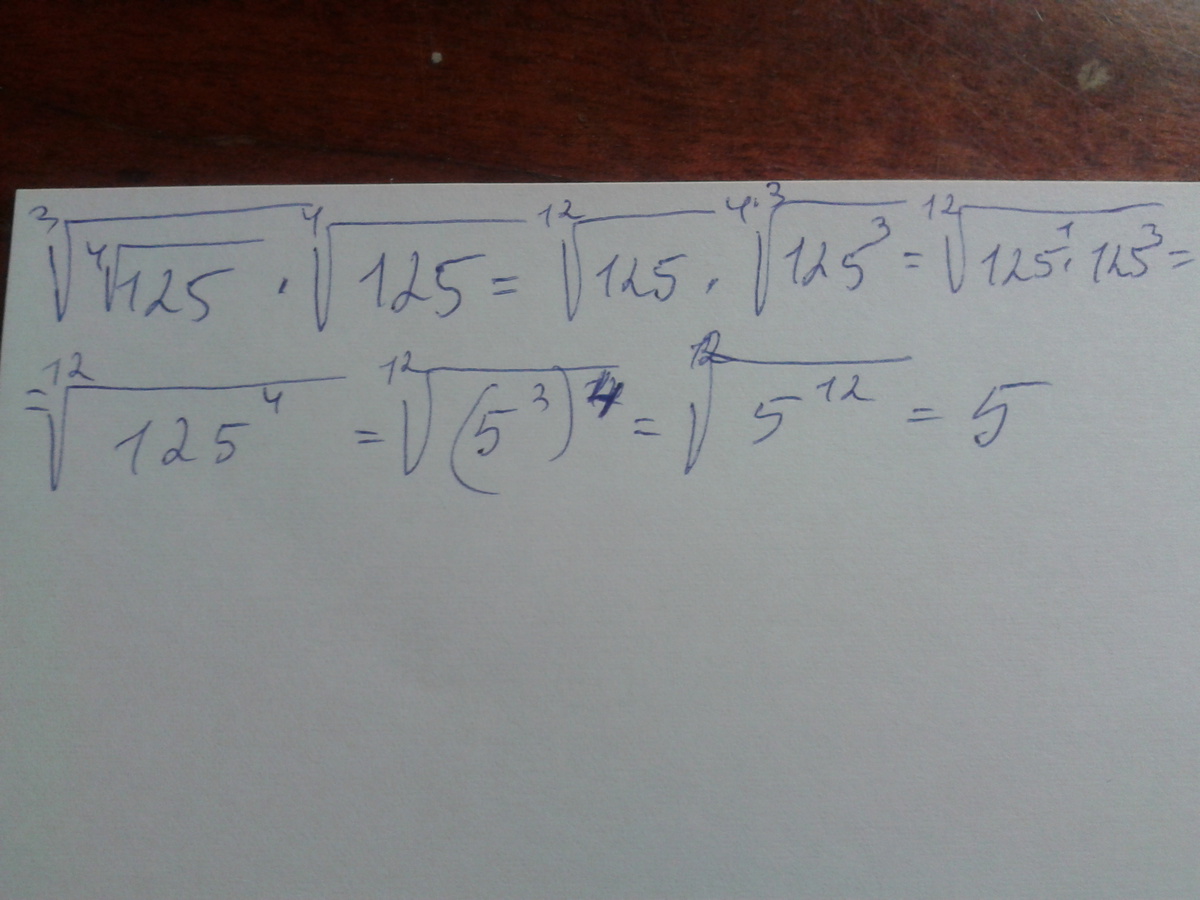 \sqrt[3]{\sqrt[4]{125}} \cdot \sqrt[4]{125} = \sqrt[12]{125} \cdot \sqrt[4 \cdot 3]{125^3} = \sqrt[12]{125^1 \cdot 125^3} =
= \sqrt[12]{125^4} = \sqrt[12]{(5^3)^4} = \sqrt[12]{5^{12}} = 5